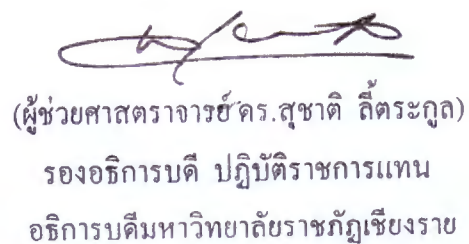 (ผู้ช่วยศาสตราจารย์ ดร.สุชาติ ลี้ตระกูล)
รองอธิการบดี ปฏิบัติราชการแทน
อธิการบดีมหาวิทยาลัยราชภัฏเชียงราย